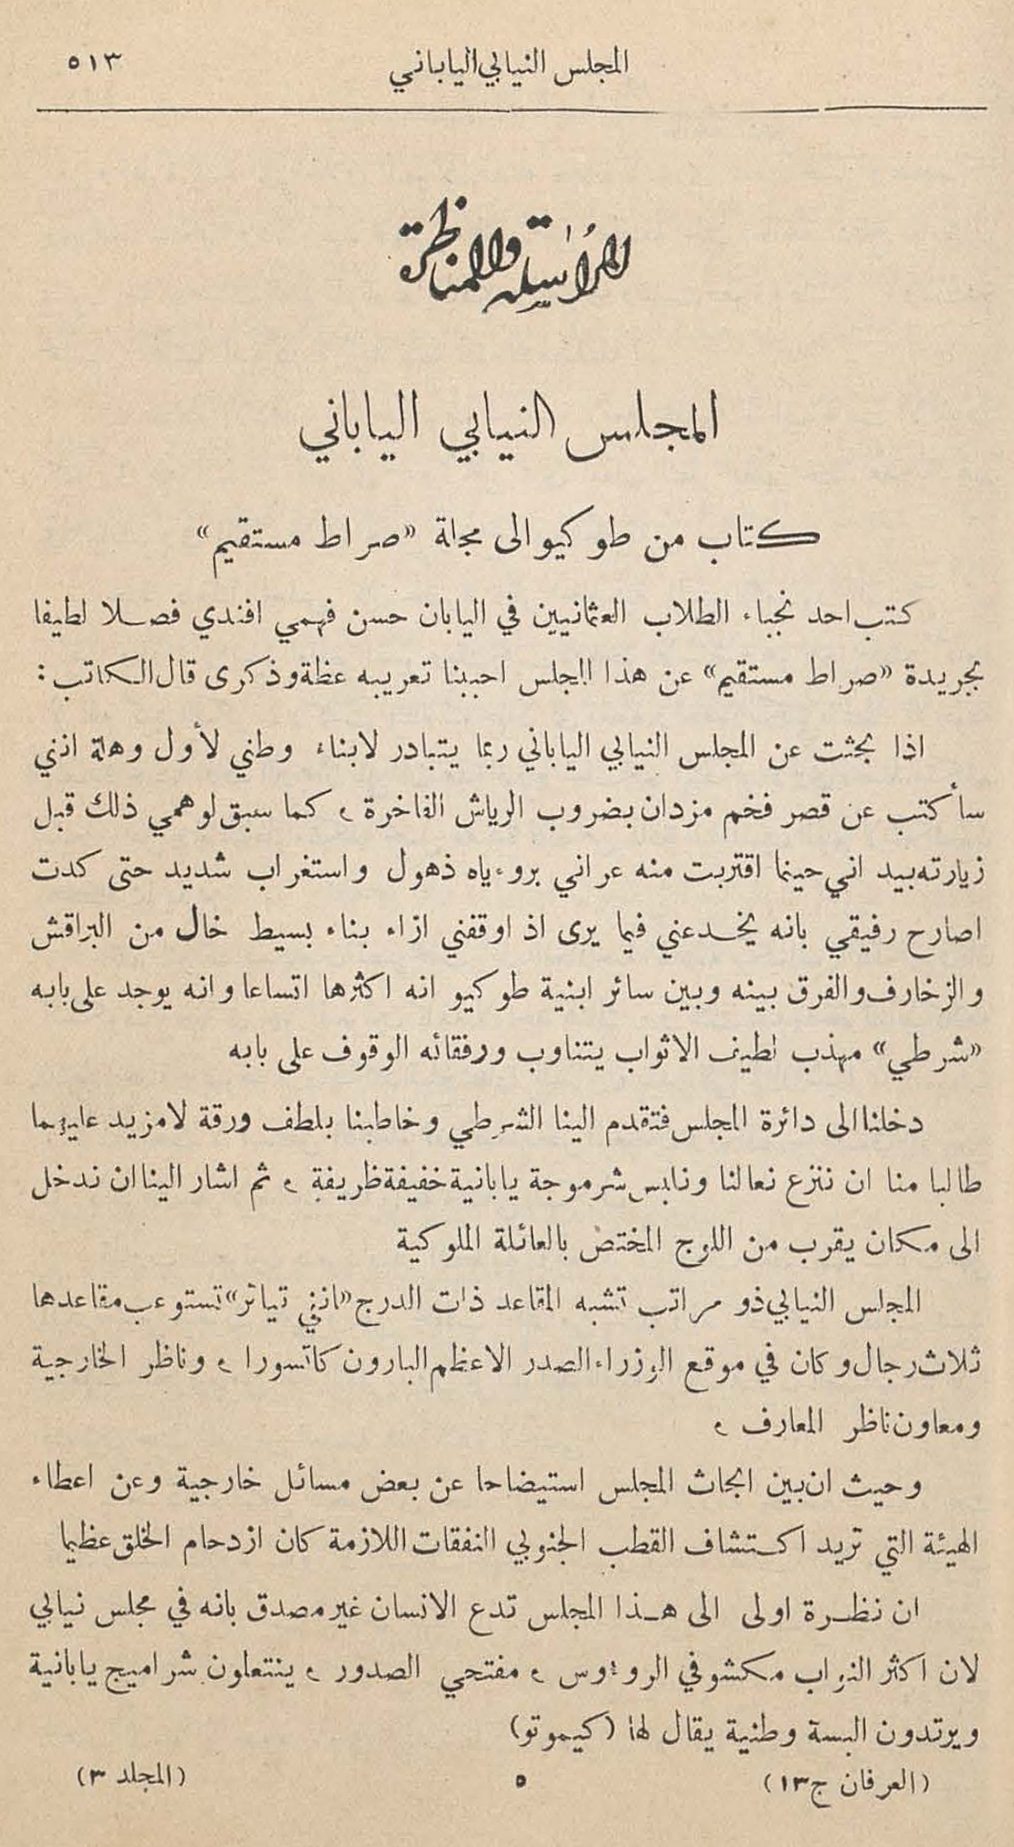 المجلس النيابي الياباني
٥١٣
المراسلة والمناظرة
المجلس النيابي الياباني
كتاب من طوكيو الى مجلة «صراط مستقيم»
كتب احد نجباء الطلاب العثمانيين في اليابان حسن فهمي افندي فصلا لطيفا
بجريدة «صراط مستقيم» عن هذا المجلس احببنا تعريبه عظة وذكرى قال الكاتب :
اذا بحثت عن المجلس النيابي الياباني ربما يتبادر لابناء وطني لأول وهلة انني
سأكتب عن قصر فخم مزدان بضروب الرياش الفاخرة ، كما سبق لوهمي ذلك قبل
زيارته بيد اني حينما اقتربت منه عراني بروءياه ذهول واستغراب شديد حتى كدت
اصارح رفيقي بانه يخدعني فيما يرى اذ اوقفني ازاء بناء بسيط خال من البراقش
والزخارف والفرق بينه وبين سائر ابنية طوكيو انه اكثرها اتساعا وانه يوجد على بابه
«شرطي» مهذب لطيف الاثواب يتناوب ورفقائه الوقوف على بابه
دخلنا الى دائرة المجلس فتقدم الينا الشرطي وخاطبنا بلطف ورقة لا مزيد عليهما
طالبا منا ان ننزع نعالنا ونلبس شرموجة يابانية خفيفة ظريفة ، ثم اشار الينا ان ندخل
الى مكان يقرب من اللوج المختص بالعائلة الملوكية
المجلس النيابي ذو مراتب تشبه المقاعد ذات الدرج «انفي تياتر» تستوعب مقاعدها
ثلاث رجال وكان في موقع الوزراء الصدر الاعظم البارون كاتسورا ، وناظر الخارجية
ومعاون ناظر المعارف ،
وحيث ان بين ابحاث المجلس استيضاحا عن بعض مسائل خارجية وعن اعطاء
الهيئة التي تريد اكتشاف القطب الجنوبي النفقات اللازمة كان ازدحام الخلق عظيما
ان نظرة اولى الى هذا المجلس تدع الانسان غير مصدق بانه في مجلس نيابي
لان اكثر النواب مكشوفي الروءوس ، مفتحي الصدور ، ينتعلون شراميج يابانية
ويرتدون البسة وطنية يقال لها (كيموتو)
(العرفان ج١٣)
٥
(المجلد ٣)